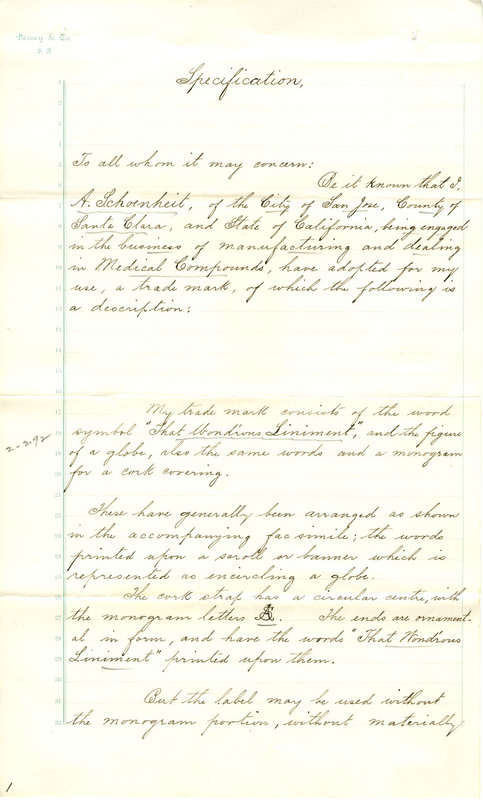 Dewey & Co.
S. F.
Specification.
To all whom it may concern:
Be it known that I,
A. Schoenheit, of the City of San Jose, County of
Santa Clara, and State of California, being engaged
in the business of manufacturing and dealing
in Medical Compounds, have adopted for my
use, a trade mark, of which the following is
a description:
My trade mark consists of the word
symbol "That Wond'rous Liniment", and the figure
of a globe, also the same words and a monogram
for a cork covering.
2-292
These have generally been arranged as shown
in the accompanying facsimile; the words
printed upon a scroll or banner which is
represented as encircling a globe.
The cork strap has a circular centre, with
the monogram letters AS. The ends are ornament-
al in form, and have the words "That Wond'rous
Liniment" printed upon them.
But the label may be used without
the monogram portion, without materially
1